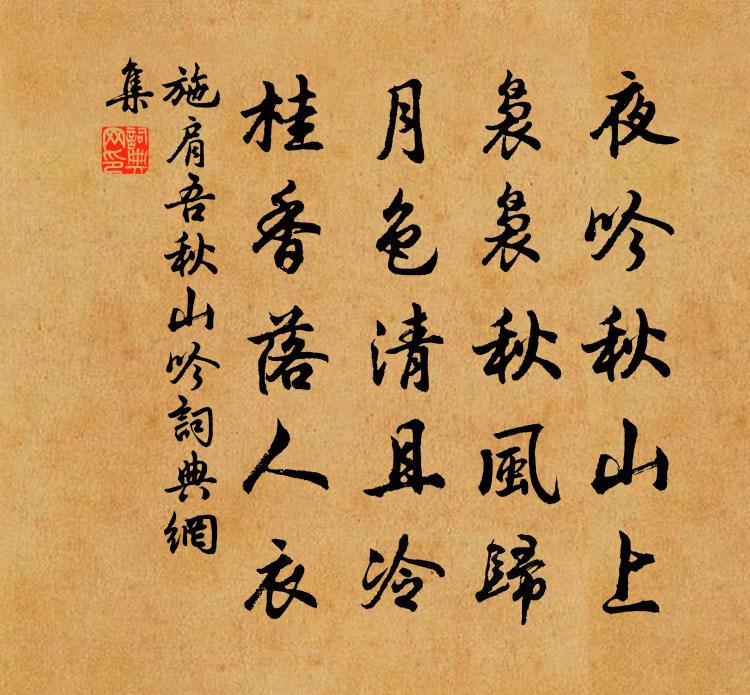 夜吟秋山上
裊裊秋風歸
月色清且冷
桂香落人衣
施肩吾秋山吟詞典網
集
詞典
網印